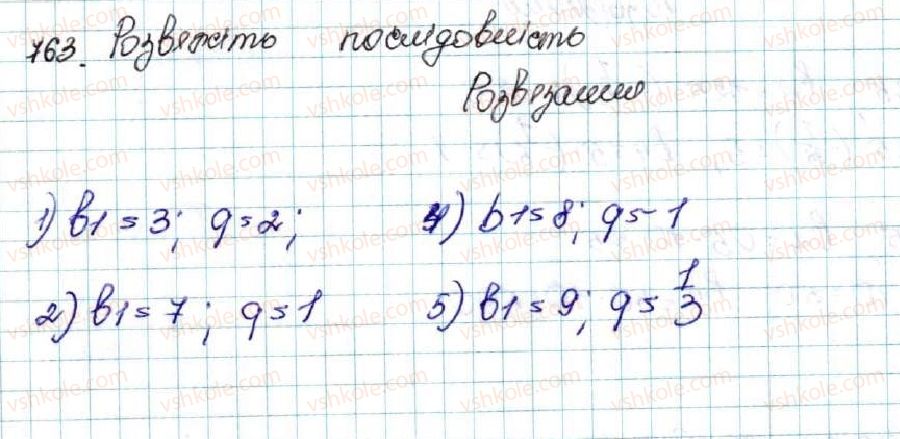 763. Розвяжіть послідовність
Розвязання
1) b1 = 3; q = 2;
4) b1 = 8; q = -1
2) b1 = 7; q = 1
5) b1 = 9; q = 1/3
vshkole.com